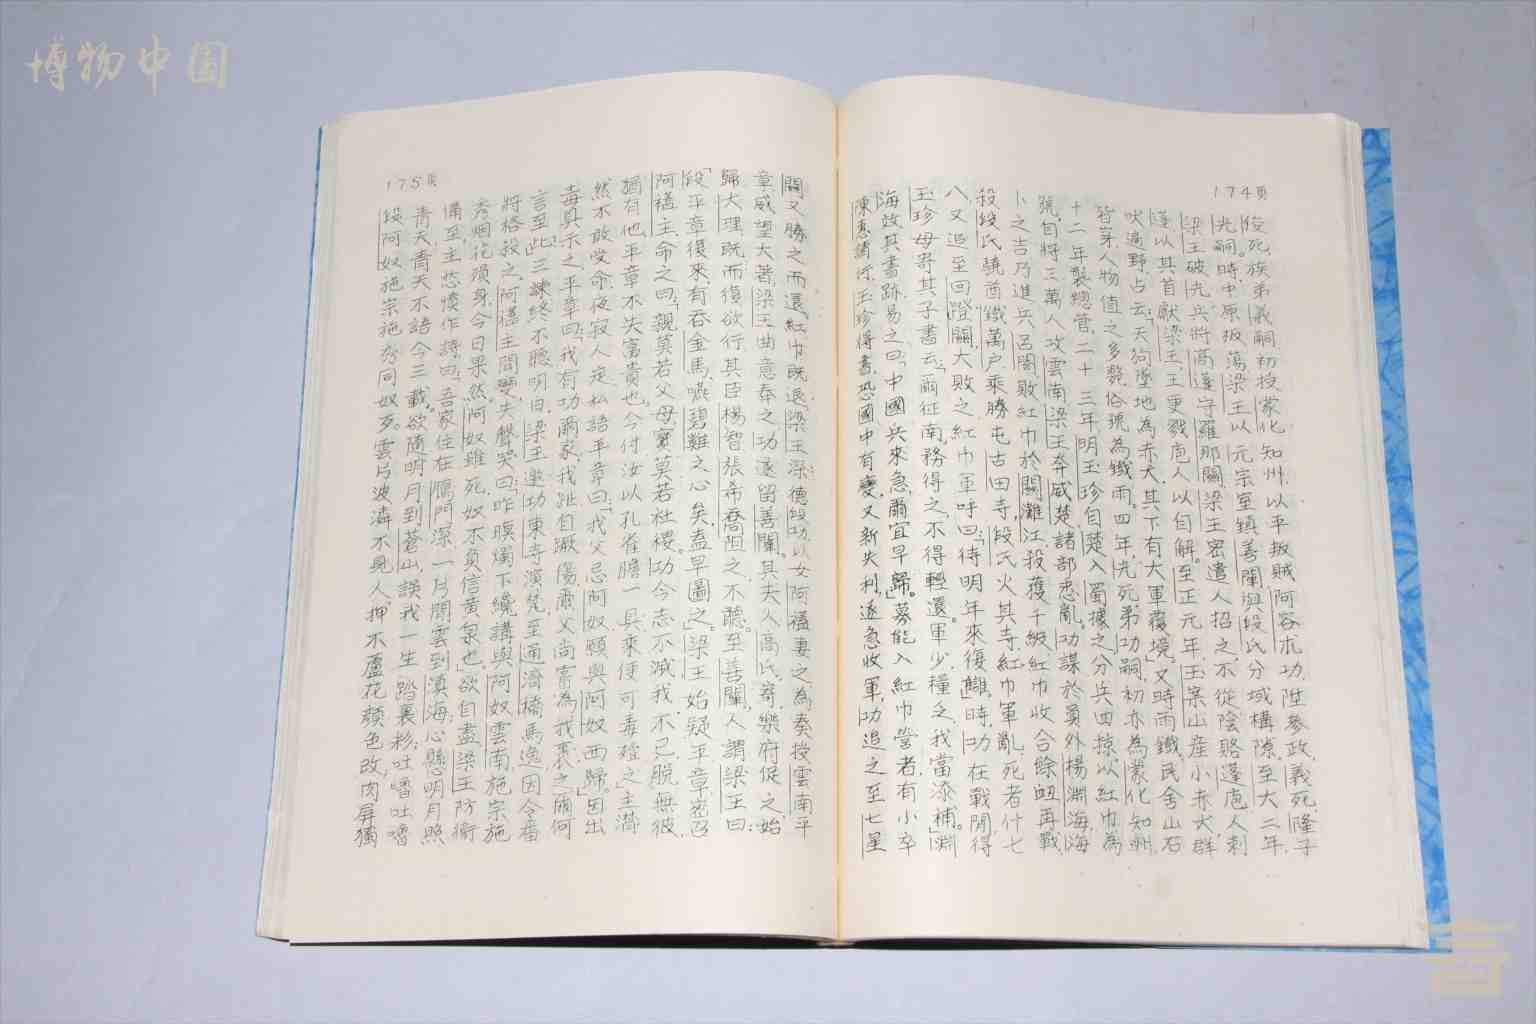 博物中国
174頁
俊死,族弟義嗣初授蒙化知州,以平叛賊阿容朮功,陞參政,義死,隆子
光嗣。時中原板蕩,梁王以元宗室鎮善闡,與段氏分域構隙。至大二年,
梁王破光兵,將高蓬守羅那關,梁王密遣人招之,不從,陰賂蓬庖人刺
蓬,以其首獻梁王,王更戮庖人以自解。至正元年,玉案山產小赤犬,群
吠遍野,占云:「天狗墜地為赤犬,其下有大軍覆境」,又時雨鐵,民舍山石
皆穿,人物值之多斃,俗號為鐵雨。四年,光死,弟功嗣,初亦為蒙化知州,
十二年襲總管,二十三年,明玉珍自楚入蜀據之,分兵四掠,以紅巾為
號,自將三萬人攻雲南,梁王奔威楚,諸部悉亂,功謀於員外楊淵海,海
卜之吉,乃進兵呂閣,敗紅巾於關灘江,殺獲千級,紅巾收合餘衄再戰,
殺段氏驍酋鐵萬户,乘勝屯古田寺,段氏火其寺,紅巾軍亂,死者什七
八,又追至回蹬關,大敗之,紅巾軍呼曰:「待明年來復讎。」時,功在戰間得
玉珍母寄其子書云:「爾征南,務得之,不得輕還,軍少糧乏,我當添補。」淵
海效其書跡易之曰:「中國兵來急,爾宜早歸。」募能入紅巾營者,有小卒
陳惠請行,玉珍得書,恐國中有變,又新失利,遂急收軍,功追之至七星
175頁
關,又勝之而還,紅巾既退,梁王深德段功,以女阿𥙿妻之,為奏授雲南平
章,威望大著,梁王曲意奉之,功遂留善闡。其夫人高氏,寄樂府促之,始
歸大理,既而復欲行,其臣楊智張希喬阻之,不聽。至善闡,人謂梁王曰:
「段平章復來,有吞金馬,嚥碧雞之心矣,盍早圖之。」梁王始疑平章,密召
阿𥙿主,命之曰:「親莫若父母,寶莫若社稷。功今志不滅我,不已,脫無彼,
猶有他平章,不失富貴也,今付汝以孔雀膽一具,乘便可毒殪之」,主潸
然不敢受命,夜寂人定,私語平章曰:「我父忌阿奴,願與阿奴西歸。」因出
毒具示之,平章曰:「我有功爾家,我趾自蹶傷,爾父尚嘗為我裹之,爾何
言至此」,三諫終不聽,明日,梁王邀功東寺演梵,至通濟橋,馬逸,因令番
將格殺之,阿𥙿主聞變,失聲哭曰:「昨暝燭下纔講與阿奴,雲南施宗施
秀,烟花殞身,今日果然。阿奴雖死,奴不負信黄泉也」,欲自盡,梁王防衛
備至,主愁憤作詩曰:「吾家住在鴈門深,一片閒雲到滇海,心懸明月照
青天,青天不語今三載,欲隨明月到蒼山,誤我一生踏裏彩;吐嚕吐嚕
段阿奴,施宗施秀同奴歹。雲片波潾不見人,押不盧花顔色改,肉屏獨